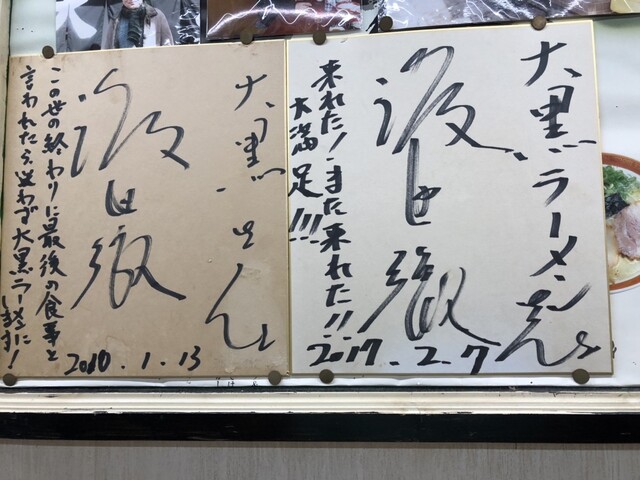 大黒ラーメンさん
波田徹
来れた!また来れた!!
大満足!!!
2017.2.7
大黒さん
この世の終わりに最後の食事と
言われたら迷わず大黒ラーメンに
します!
2010.1.13